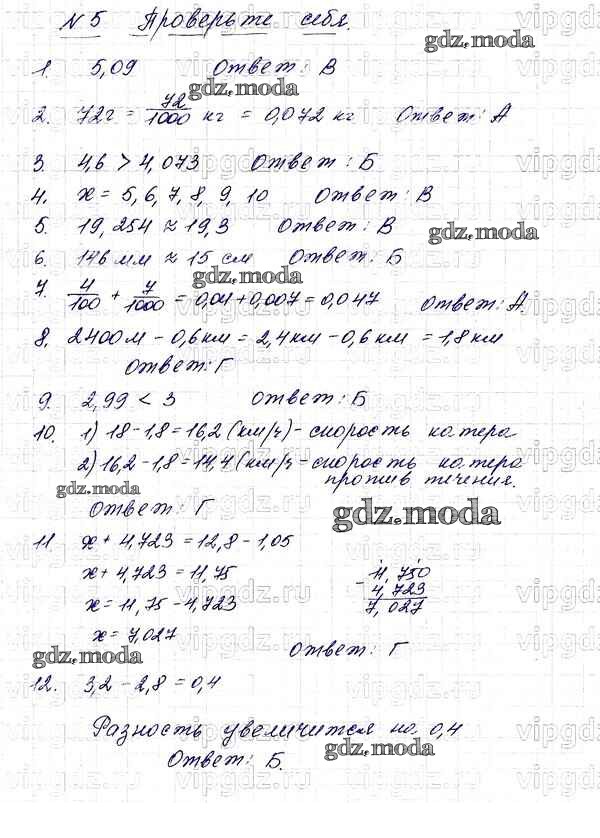 № 5 Проверьте себя.
gdz.moda
1. 5,09 Ответ: В
gdz.moda
2. 72г = 72/1000 кг = 0,072 кг Ответ: А
3. 4,6 > 4,073 Ответ: Б
4. x = 5, 6, 7, 8, 9, 10 Ответ: В
5. 19,254 ≈ 19,3 Ответ: В
gdz.moda
6. 146 мм ≈ 15 см Ответ: Б
gdz.moda
7. 4/100 + 7/1000 = 0,04 + 0,007 = 0,047 Ответ: А.
8. 2400 м - 0,6 км = 2,4 км - 0,6 км = 1,8 км
Ответ: Г
9. 2,99 < 3 Ответ: Б
10. 1) 18 - 1,8 = 16,2 (км/ч) - скорость катера
2) 16,2 - 1,8 = 14,4 (км/ч - скорость катера
против течения.
gdz.moda
Ответ: Г
gdz.moda
11. x + 4,723 = 12,8 - 1,05
x + 4,723 = 11,75
x = 11,75 - 4,723
x = 7,027
- 11,750
4,723
7,027
Ответ: Г
gdz.moda
12. 3,2 - 2,8 = 0,4
Разность увеличится на 0,4
gdz.moda
Ответ: Б.